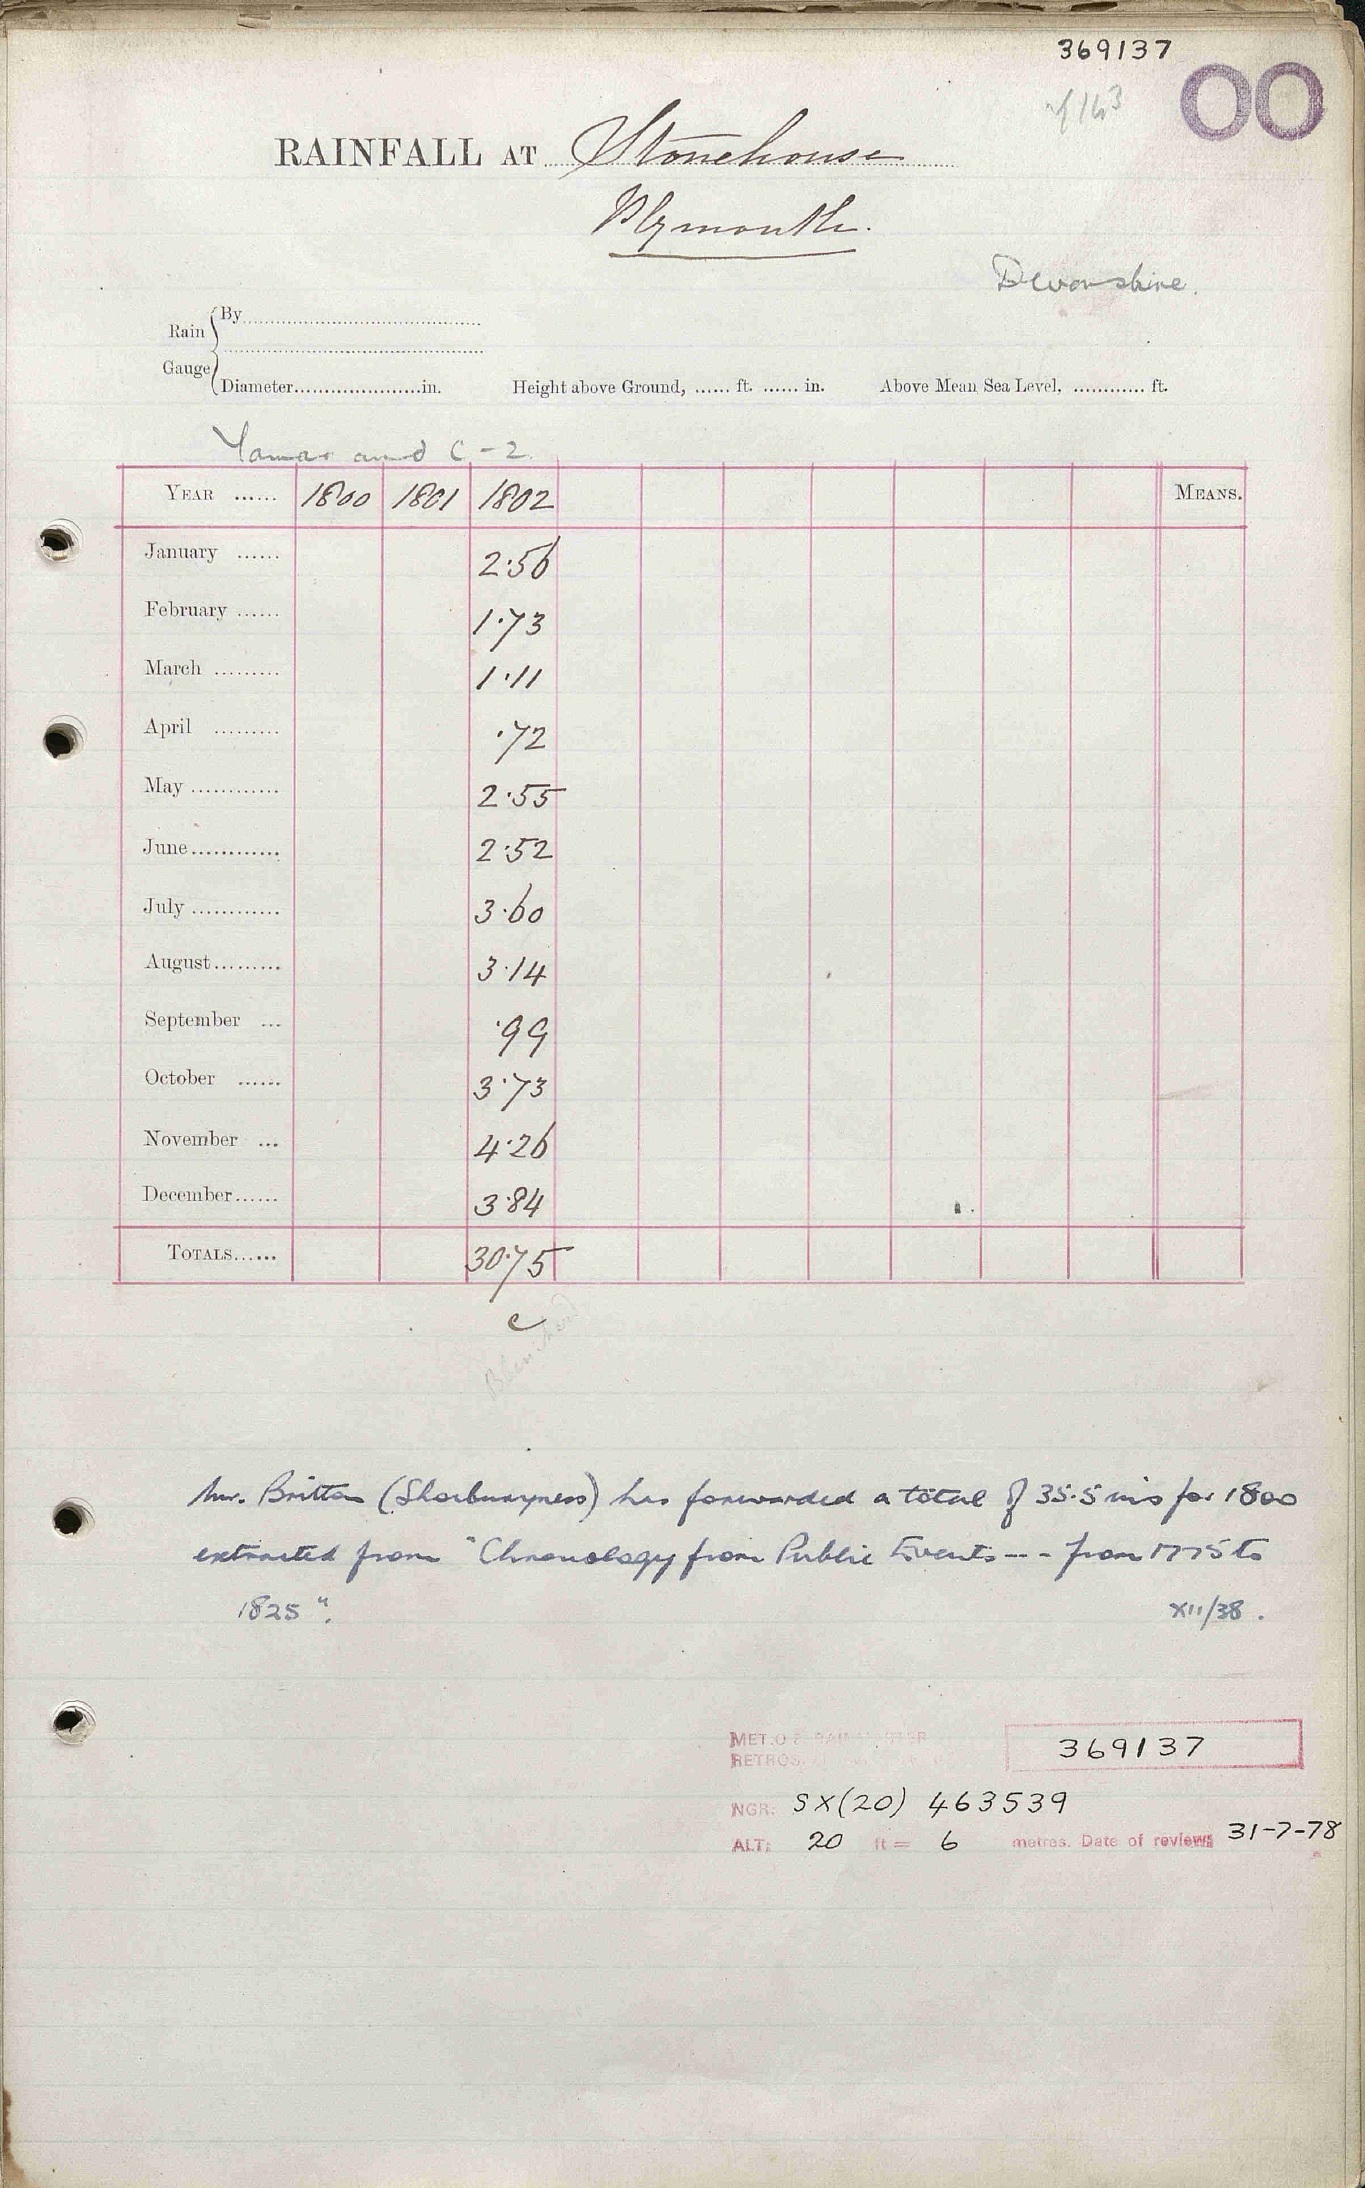 369137
00
RAINFALL AT Stonehouse
Plymouth.
Devonshire.
Rain Gauge
By
Diameter in. Height above Ground, ft. in. Above Mean Sea Level, ft.
and C-2.
YEAR 1800 1801 1802 MEANS.
January 2.56
February 1.73
March 1.11
April .72
May 2.55
June 2.52
July 3.60
August 3.14
September .99
October 3.73
November 4.26
December 3.84
TOTALS 30.75
c
Mr. Britton (Shoeburyness) has forwarded a total of 35.5 ins for 1800
extracted from "Chronology from Public Events --- from 1775 to
1825".
XII/38.
MET.O 8
369137
NGR: SX(20) 463539
ALT: 20 ft = 6 metres. Date of review: 31-7-78